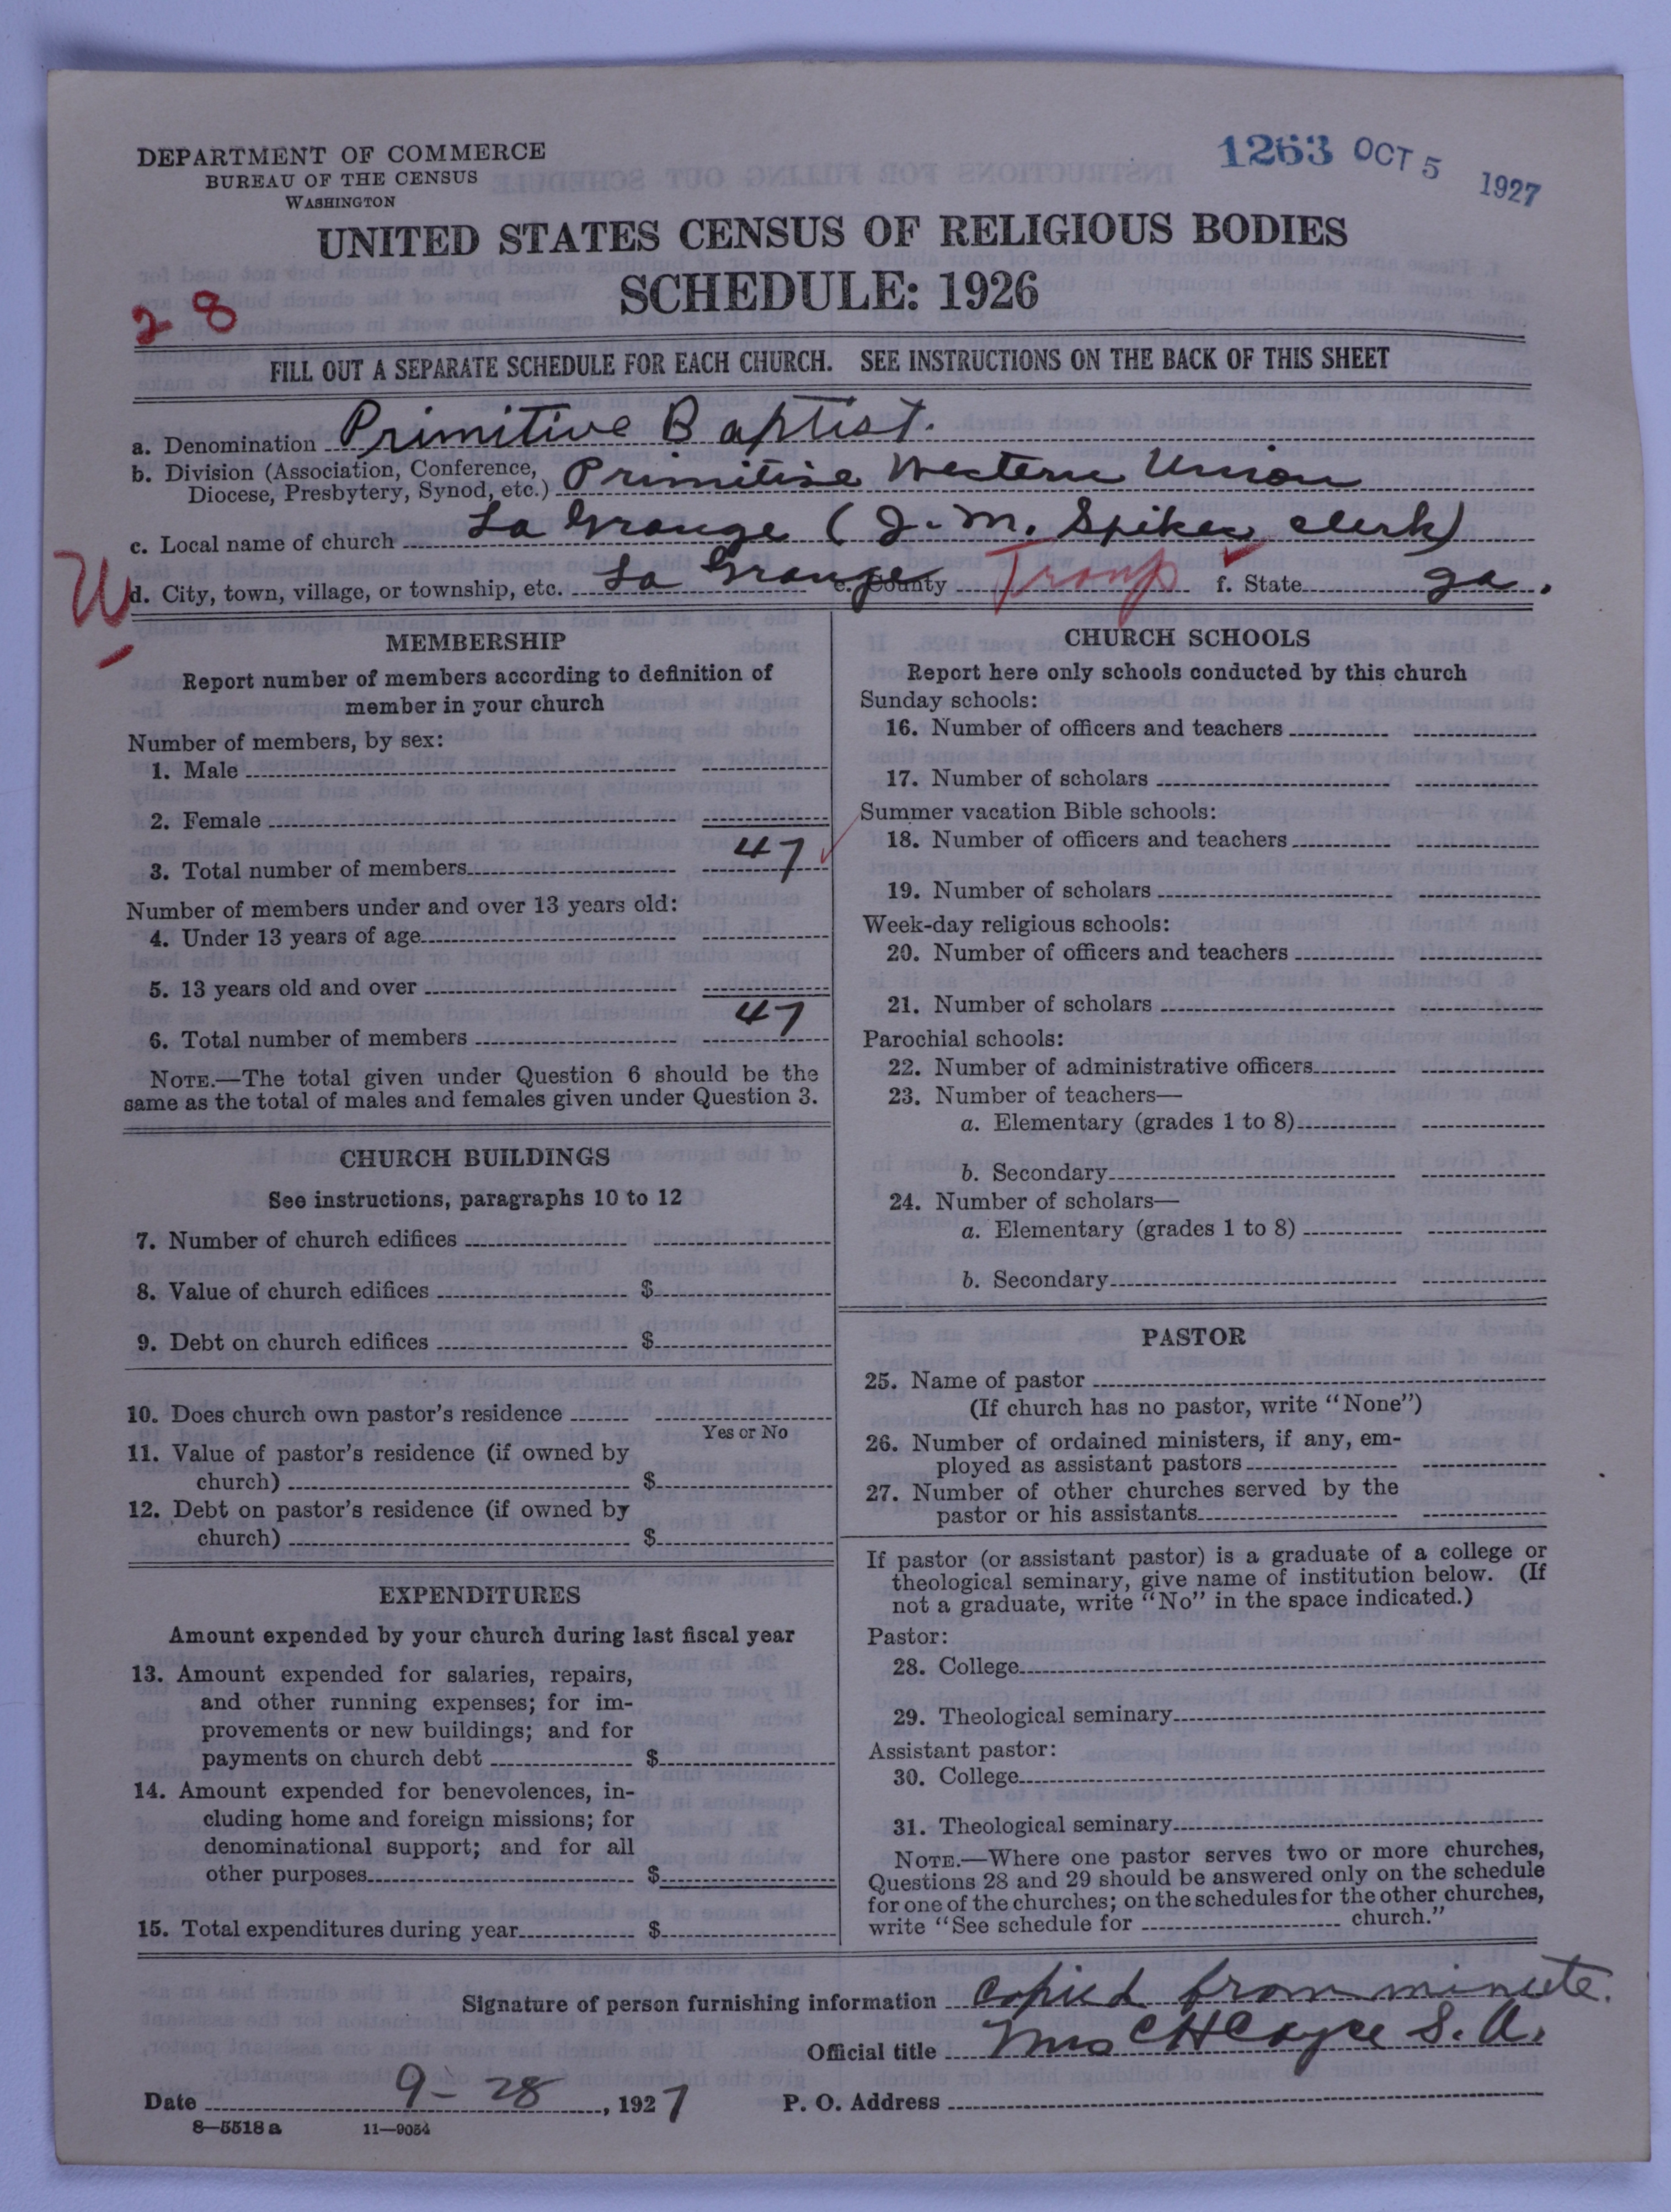 DEPARTMENT OF COMMERCE
BUREAU OF THE CENSUS
WASHINGTON
1263 OCT 5 1927
UNITED STATES CENSUS OF RELIGIOUS BODIES
SCHEDULE: 1926
28
FILL OUT A SEPARATE SCHEDULE FOR EACH CHURCH. SEE INSTRUCTIONS ON THE BACK OF THIS SHEET
a. Denomination Primitive Baptist.
b. Division (Association, Conference, Diocese, Presbytery, Synod, etc.) Primitive Western Union
c. Local name of church La Grange (J. M. Spikes clerk)
W
d. City, town, village, or township, etc. La Grange e. County Troup f. State ga.
MEMBERSHIP
Report number of members according to definition of
member in your church
Number of members, by sex:
1. Male
2. Female
3. Total number of members 47
Number of members under and over 13 years old:
4. Under 13 years of age
5. 13 years old and over
6. Total number of members 47
NOTE.—The total given under Question 6 should be the
same as the total of males and females given under Question 3.
CHURCH BUILDINGS
See instructions, paragraphs 10 to 12
7. Number of church edifices
8. Value of church edifices $
9. Debt on church edifices $
10. Does church own pastor's residence
Yes or No
11. Value of pastor's residence (if owned by
church) $
12. Debt on pastor's residence (if owned by
church) $
EXPENDITURES
Amount expended by your church during last fiscal year
13. Amount expended for salaries, repairs,
and other running expenses; for im-
provements or new buildings; and for
payments on church debt $
14. Amount expended for benevolences, in-
cluding home and foreign missions; for
denominational support; and for all
other purposes $
15. Total expenditures during year $
CHURCH SCHOOLS
Report here only schools conducted by this church
Sunday schools:
16. Number of officers and teachers
17. Number of scholars
Summer vacation Bible schools:
18. Number of officers and teachers
19. Number of scholars
Week-day religious schools:
20. Number of officers and teachers
21. Number of scholars
Parochial schools:
22. Number of administrative officers
23. Number of teachers—
a. Elementary (grades 1 to 8)
b. Secondary
24. Number of scholars—
a. Elementary (grades 1 to 8)
b. Secondary
PASTOR
25. Name of pastor
(If church has no pastor, write "None")
26. Number of ordained ministers, if any, em-
ployed as assistant pastors
27. Number of other churches served by the
pastor or his assistants
If pastor (or assistant pastor) is a graduate of a college or
theological seminary, give name of institution below. (If
not a graduate, write "No" in the space indicated.)
Pastor:
28. College
29. Theological seminary
Assistant pastor:
30. College
31. Theological seminary
NOTE.—Where one pastor serves two or more churches,
Questions 28 and 29 should be answered only on the schedule
for one of the churches; on the schedules for the other churches,
write "See schedule for church."
Signature of person furnishing information copied from minute.
Official title Mrs C H Cayce S. A.
Date 9-28, 1927 P. O. Address
8—5518 a 11—9054